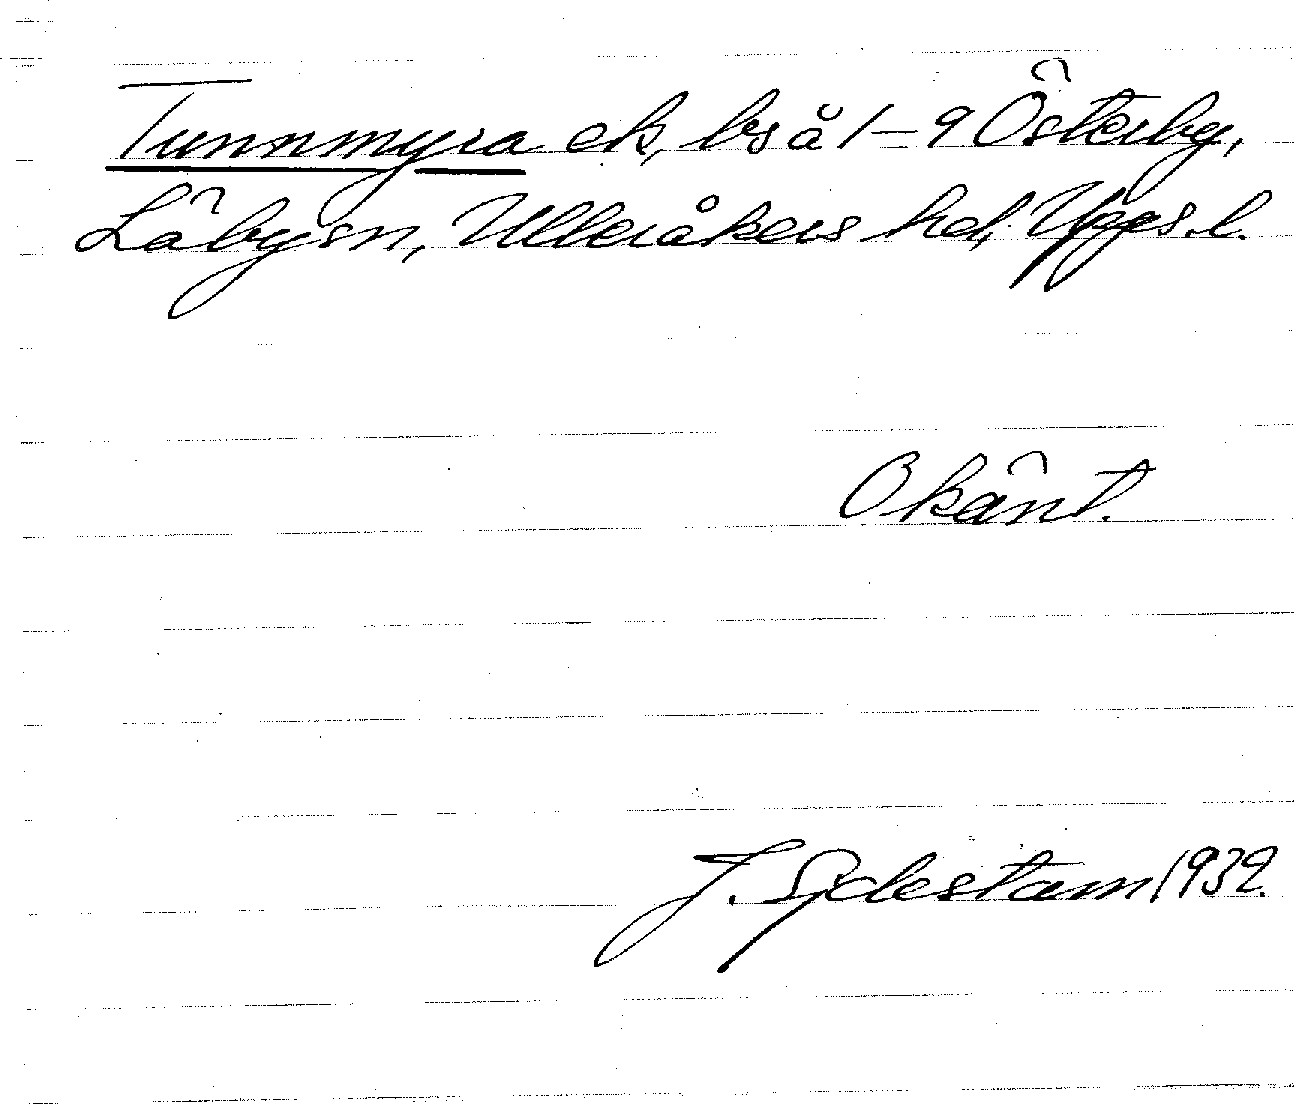 Tunnmyra ek, bs å 1–9 Österby,
Läby sn, Ulleråkers hd, Upps. l.
Okänt.
J. Sjdestam 1932.